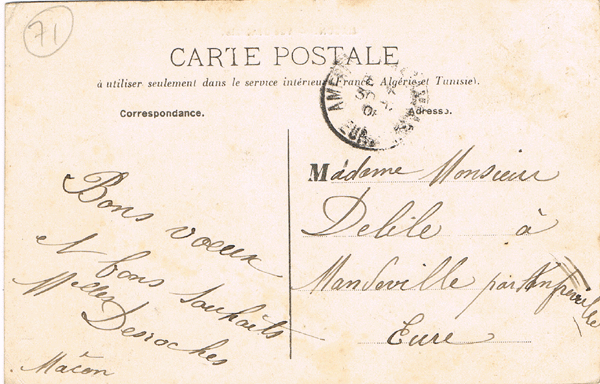 71
CARTE POSTALE
à utiliser seulement dans le service intérieur (France, Algérie et Tunisie).
Correspondance.
Adresse.
Bons voeux
et bons souhaits
Melles Desroches
Mâcon
Madame Monsieur
Delile à
Mandeville par Amfreville
Eure